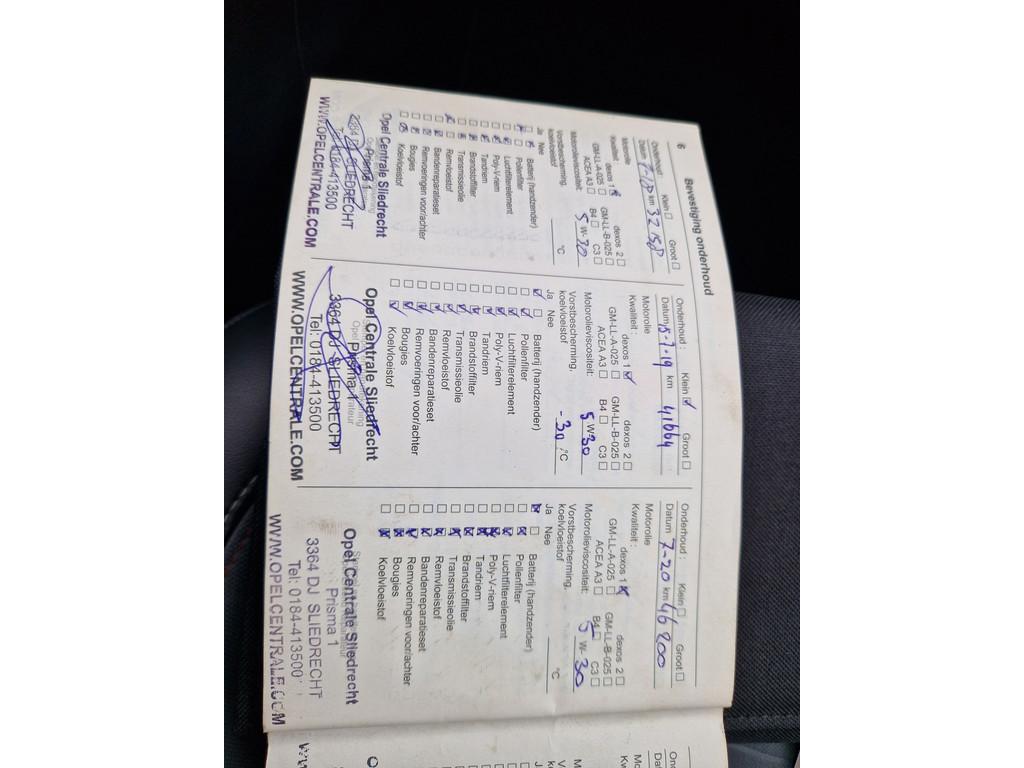 6
Bevestiging onderhoud
Onderhoud: Klein Groot
Datum km
Motorolie
Kwaliteit: dexos 1 dexos 2
GM-LL-A-025 GM-LL-B-025
ACEA A3 B4 C3
Motorolieviscositeit: 5 W-
Vorstbescherming,
koelvloeistof °C
Ja Nee
Batterij (handzender)
Pollenfilter
Luchtfilterelement
Poly-V-riem
Tandriem
Brandstoffilter
Transmissieolie
Remvloeistof
Bandenreparatieset
Remvoeringen voor/achter
Bougies
Koelvloeistof
Opel Centrale Sliedrecht
Prisma 1
DJ SLIEDRECHT
Tel: 0184-413500
WWW.OPELCENTRALE.COM
Onderhoud: Klein Groot
Datum 15-7-19 km 41664
Motorolie
Kwaliteit: dexos 1 dexos 2
GM-LL-A-025 GM-LL-B-025
ACEA A3 B4 C3
Motorolieviscositeit: 5 W-30
Vorstbescherming,
koelvloeistof -30 °C
Ja Nee
Batterij (handzender)
Pollenfilter
Luchtfilterelement
Poly-V-riem
Tandriem
Brandstoffilter
Transmissieolie
Remvloeistof
Bandenreparatieset
Remvoeringen voor/achter
Bougies
Koelvloeistof
Opel Centrale Sliedrecht
Prisma 1
3364 DJ SLIEDRECHT
Tel: 0184-413500
WWW.OPELCENTRALE.COM
Onderhoud: Klein Groot
Datum 7-20 km 46200
Motorolie
Kwaliteit: dexos 1 dexos 2
GM-LL-A-025 GM-LL-B-025
ACEA A3 B4 C3
Motorolieviscositeit: 5 W-30
Vorstbescherming,
koelvloeistof °C
Ja Nee
Batterij (handzender)
Pollenfilter
Luchtfilterelement
Poly-V-riem
Tandriem
Brandstoffilter
Transmissieolie
Remvloeistof
Bandenreparatieset
Remvoeringen voor/achter
Bougies
Koelvloeistof
Opel Centrale Sliedrecht
Prisma 1
3364 DJ SLIEDRECHT
Tel: 0184-413500
WWW.OPELCENTRALE.COM